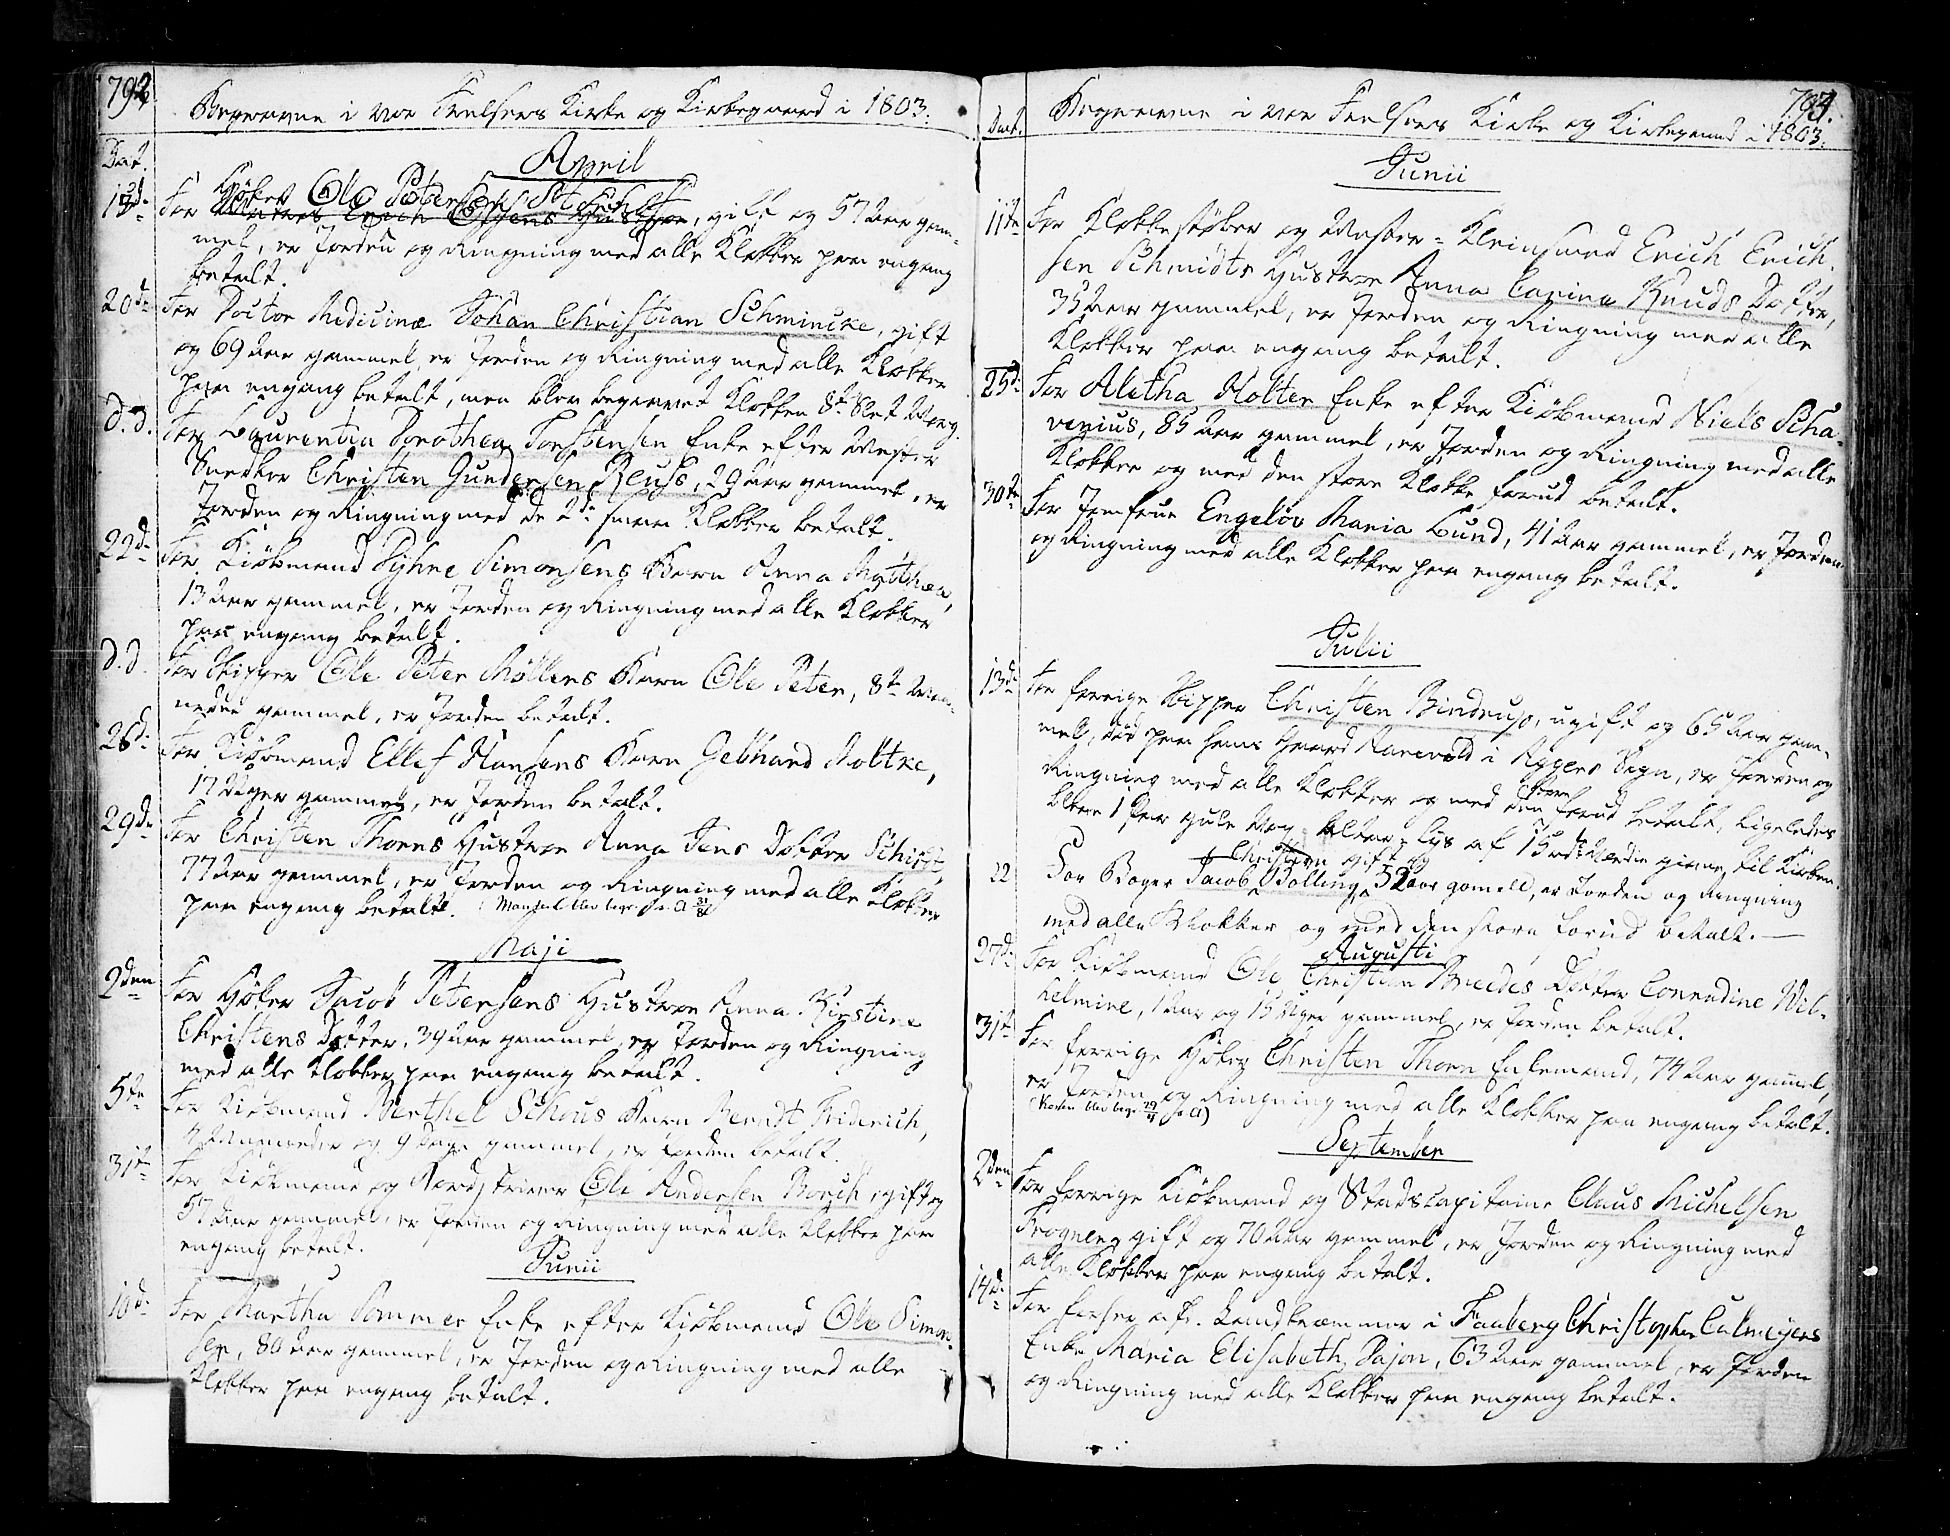 792
Begravne i vor Frelsers Kirke og Kirkegaard i 1803.
Dat.
April
13de For Høker Ole Petersen, gift og 57 Aar gam-
mel, er Jorden og Ringning med alle Klokker paa engang
betalt.
20de For Doctor Medicinæ Johan Christian Schmincke, gift
og 69 Aar gammel, er Jorden og Ringning med alle Klokker
paa engang betalt, men blev begravet Klokken 8te Slet
d.d. For Laurentia Dorothea Torstensen Enke efter Mester
Snedker Christen Gundersen Reuss, 29 Aar gammel, er
Jorden og Ringning med de 2de smaa Klokker betalt.
22de For Kiøbmand Syhne Simonsens Barn Anna Mathea,
13 Aar gammel, er Jorden og Ringning med alle Klokker
paa engang betalt.
d.d. For Skipper Ole Peter Møllers Barn Ole Peter, 8te Maa-
neder gammel, er Jorden betalt.
26de For Kiøbmand Ellef Hansens Barn Gebhard Moltke,
17 Uger gammel, er Jorden betalt.
29de For Christen Thorns Hustroe Anna Jens Dotter Schiødt,
77 Aar gammel, er Jorden og Ringning med alle Klokker
paa engang betalt.
Maji
2den For Høker Jacob Petersens Hustroe Anna Kirstine
Christens Dotter, 39 Aar gammel, er Jorden og Ringning
med alle Klokker paa engang betalt.
5te For Kiøbmand Berthel Schous Barn Berndt Friderich,
Maaneder og 9 Dage gammel, er Jorden betalt.
31te For Kiøbmand og Ole Andersen Borch, gift og
57 Aar gammel, er Jorden og Ringning med alle Klokker paa
engang betalt.
Junii
10de For Martha Sommer Enke efter Kiøbmand Ole Simon-
sen, 80 Aar gammel, er Jorden og Ringning med alle
Klokker paa engang betalt.
793.
Begravne i vor Frelsers Kirke og Kirkegaard i 1803.
Dat.
Junii
11te For Klokkestøber og Mester-Kleinsmed Erich Erich-
sen Schmidts Hustroe Anna Carina Knuds Dotter,
35 Aar gammel, er Jorden og Ringning med alle
Klokker paa engang betalt.
25de For Aletha Holter Enke efter Kiøbmand Niels Scha-
venius, 85 Aar gammel, er Jorden og Ringning med alle
Klokker og med den store Klokke forud betalt.
30te For Jomfrue Engeløv Maria Lund, 41 Aar gammel, er Jorden
og Ringning med alle Klokker paa engang betalt.
Julii
13de For forrige Skipper Christen Bindrup, ugift og 65 Aar gam-
mel, død paa hans Gaard i Aggers Sogn, er Jorden og
Ringning med alle Klokker og med den store forud betalt, ligeledes
blever 1 Par gule Vox Alter-Lys af 15 rdrs Værdie givne til Kirken.
22 For Bager Jacob Christian Bølling, gift og 32 Aar gamell, er Jorden og Ringning
med alle Klokker og med den store forud betalt.
Augusti
27de For Kiøbmand Ole Christian Bredes Dotter Conradine Wil-
helmine, 1 Aar og 15 Uger gammel, er Jorden betalt.
31te For forrige Høker Christen Thorn Enkemand, 74 Aar gammel,
er Jorden og Ringning med alle Klokker paa engang betalt.
September
2den For forrige Kiøbmand og Stadscapitaine Claus Michelsen
Frogner, gift og 70 Aar gammel, er Jorden og Ringning med
alle Klokker paa engang betalt.
14de For Landkræmmer i Faaberg Christopher Calmeyers
Enke Maria Elisabeth Pajon, 63 Aar gammel, er Jorden
og Ringning med alle Klokker paa engang betalt.